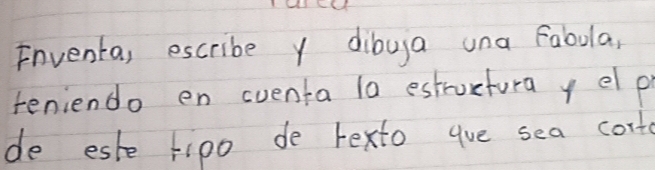 Inventa, escribe y dibuja una Fabula,
teniendo en cuenta la estructura y el
de este tipo de texto que sea